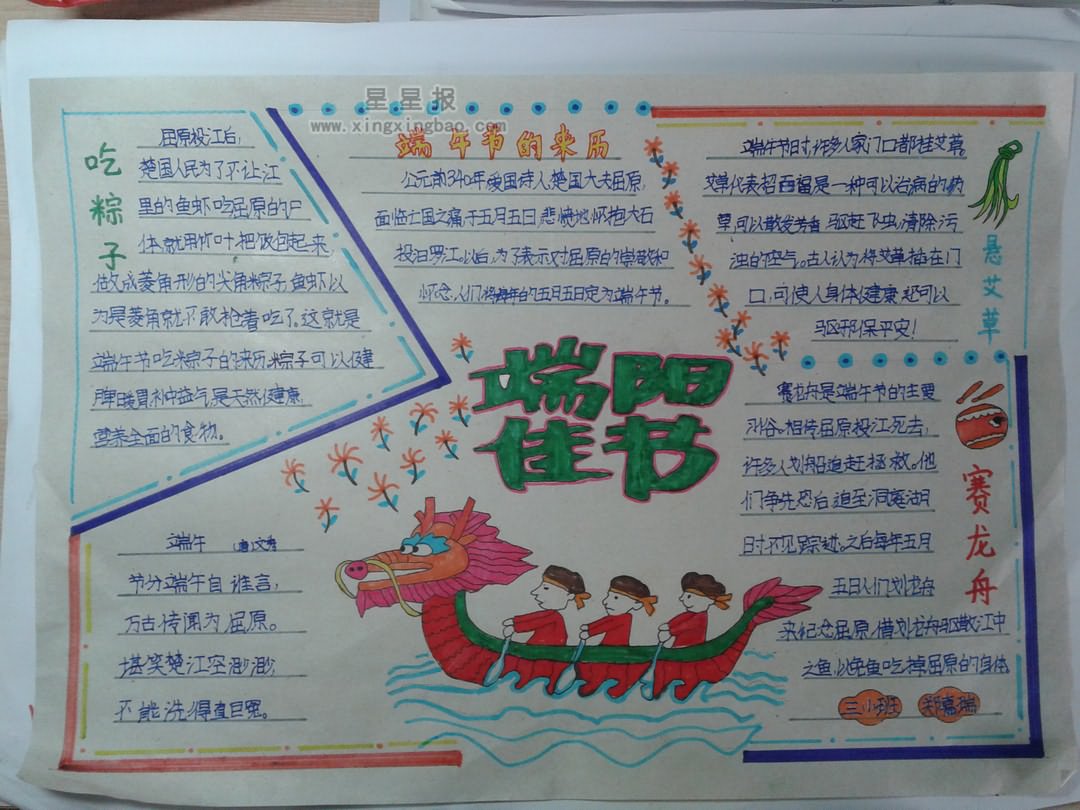 星星报
www.xingxingbao.com
吃粽子
屈原投江后,
楚国人民为了不让江
里的鱼虾吃屈原的尸
体就用竹叶把饭包起来,
做成菱角形的尖角粽子,鱼虾以
为是菱角就不敢抢着吃了。这就是
端午节吃粽子的来历.粽子可以健
脾暖胃补中益气,是天然健康
营养全面的食物。
端午节的来历
公元前340年爱国诗人楚国大夫屈原,
面临亡国之痛于五月五日,悲愤地怀抱大石
投汨罗江,以后,为了表示对屈原的崇敬和
怀念,人们将每年的五月五日定为端午节。
端午节时,许多人家门口都挂艾草。
艾草代表招百福是一种可以治病的药
草,可以散发芳香 驱赶飞虫,清除污
浊的空气。古人认为将艾草插在门
口,可使人身体健康,还可以
驱邪保平安!
悬艾草
端阳
佳节
赛龙舟是端午节的主要
习俗。相传屈原投江死去,
许多人划船追赶拯救。他
们争先恐后,追至洞庭湖
时不见踪迹。之后每年五月
五日人们划龙舟
来纪念屈原,借划龙舟驱散江中
之鱼,以免鱼吃掉屈原的身体。
赛龙舟
三小班 郑嘉瑞
端午 唐文秀
节分端午自谁言,
万古传闻为屈原。
堪笑楚江空渺渺,
不能洗得直臣冤。